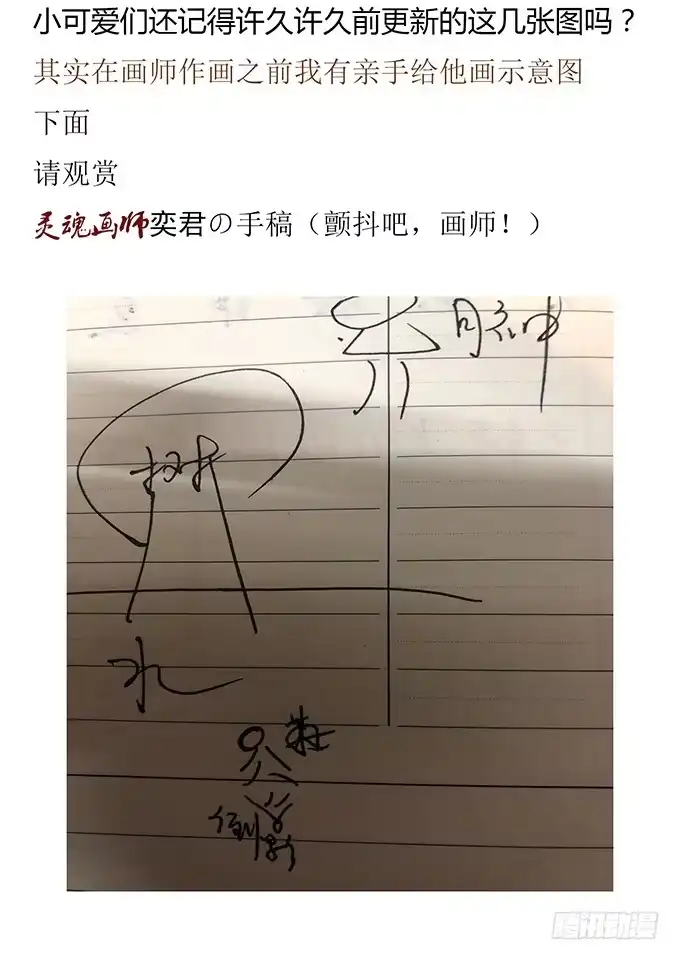 小可爱们还记得许久许久前更新的这几张图吗？
其实在画师作画之前我有亲手给他画示意图
下面
请观赏
灵魂画师奕君の手稿（颤抖吧，画师！）
月神
树
水
倒影
腾讯动漫